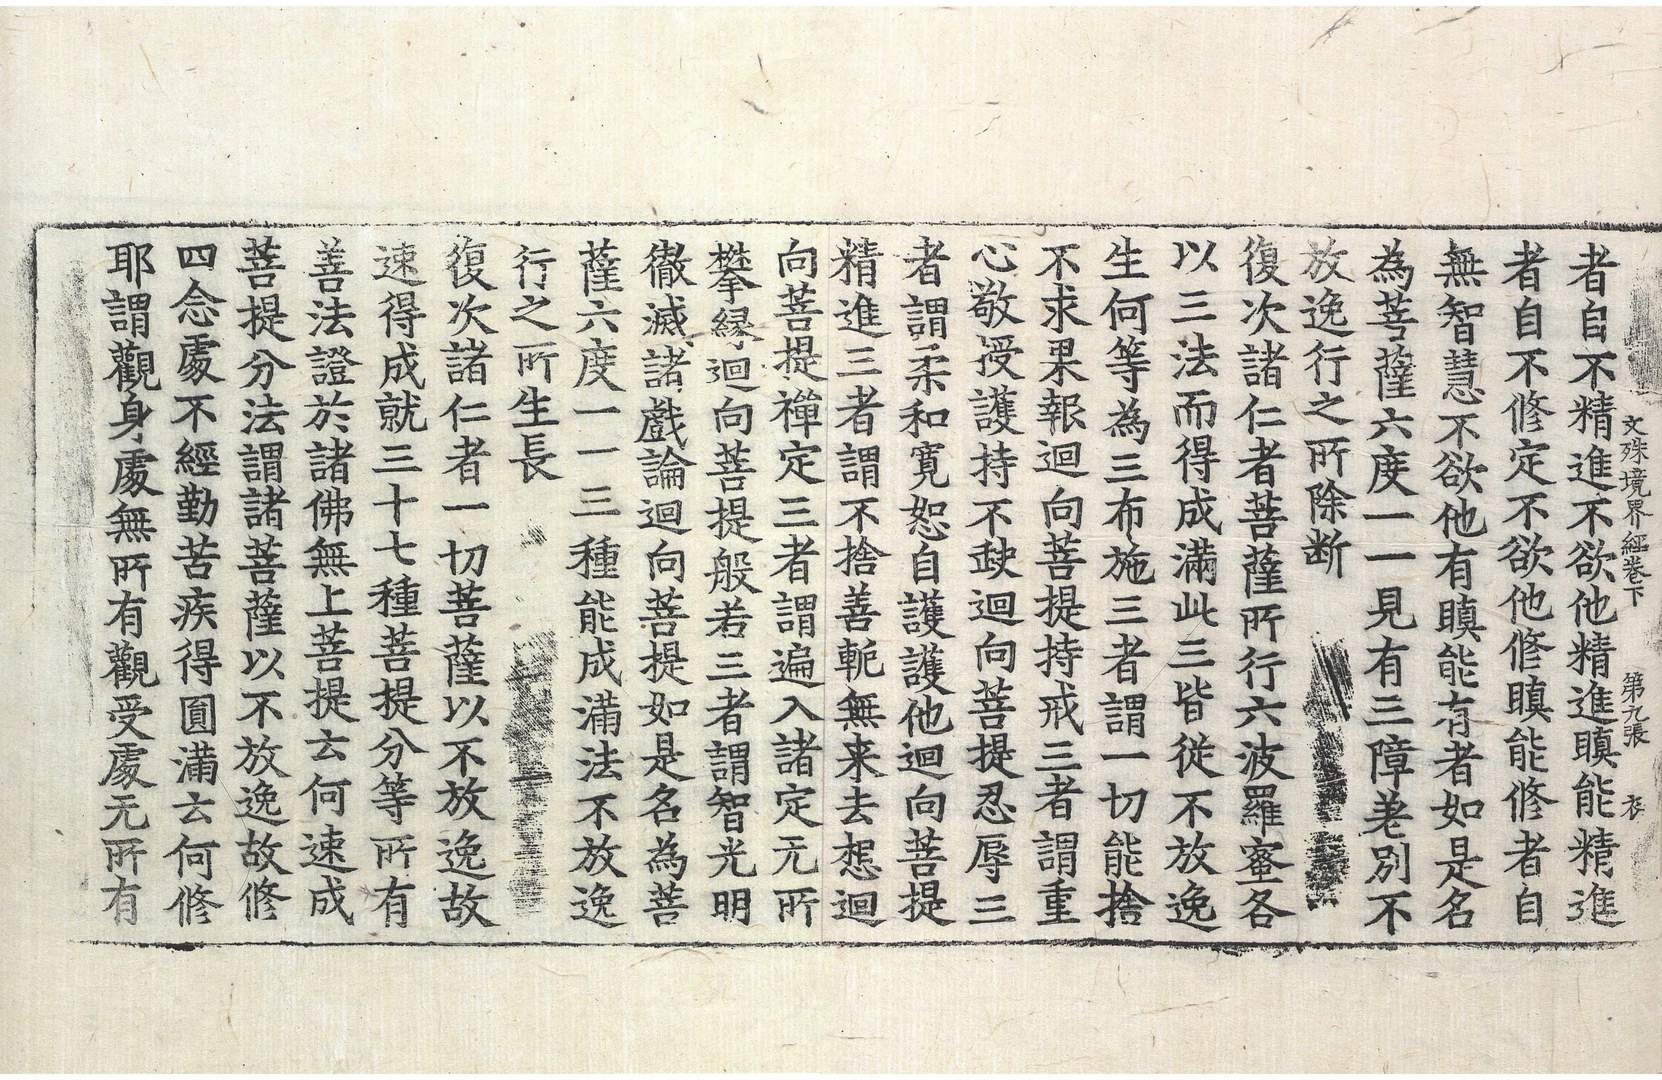 文殊境界經卷下　第九張　衣
者自不精進不欲他精進瞋能精進
者自不修定不欲他修瞋能修者自
無智慧不欲他有瞋能有者如是名
為菩薩六度一一見有三障差別不
放逸行之所除断
復次諸仁者菩薩所行六波羅蜜各
以三法而得成滿此三皆從不放逸
生何等為三布施三者謂一切能捨
不求果報迴向菩提持戒三者謂重
心敬授護持不缺迴向菩提忍辱三
者謂柔和寛恕自護護他迴向菩提
精進三者謂不捨善軛無来去想迴
向菩提禪定三者謂遍入諸定无所
攀縁迴向菩提般若三者謂智光明
徹滅諸戲論迴向菩提如是名為菩
薩六度一一三種能成滿法不放逸
行之所生長
復次諸仁者一切菩薩以不放逸故
速得成就三十七種菩提分等所有
善法證於諸佛無上菩提云何速成
菩提分法謂諸菩薩以不放逸故修
四念處不經勤苦疾得圓滿云何修
耶謂觀身處無所有觀受處无所有